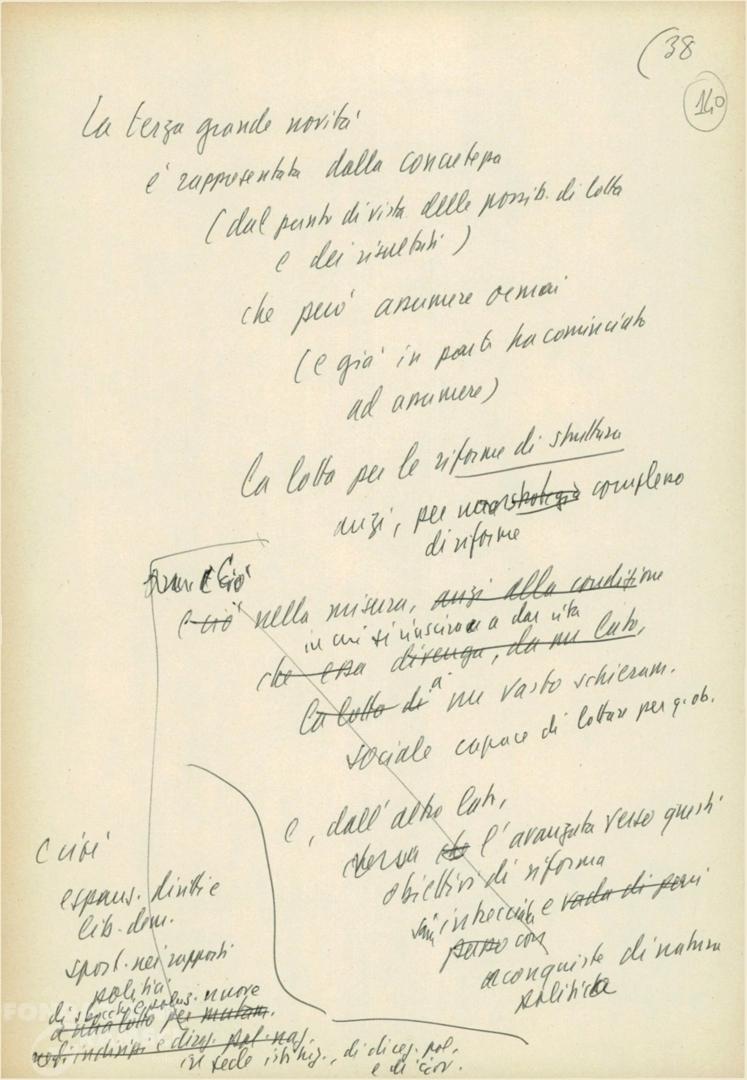 (38
140
La terza grande novità
è rappresentata dalla concretezza
(dal punto di vista delle possib. di lotta
e dei risultati)
che può assumere ormai
(e già in parte ha cominciato
ad assumere)
la lotta per le riforme di struttura
anzi, per una strategia complesso
di riforme
Ciò
e ciò nella misura, anzi alla condizione
in cui si riuscirà a dar vita
che essa divenga, da un lato,
la lotta di a un vasto schieram.
sociale capace di lottare per q. ob.
e, dall'altro lato,
che l'avanzata verso questi
obiettivi di riforma
sia intrecciata e vada di pari
passo con
conquiste di natura
politica
E cioè
espans. diritti e
lib. dem.
spost. nei rapporti
politici
di sbocchi e soluz. nuove
e di una lotta per mutam.
negli indirizzi e direz. pol. naz.
in sede istituz., di direz. pol.